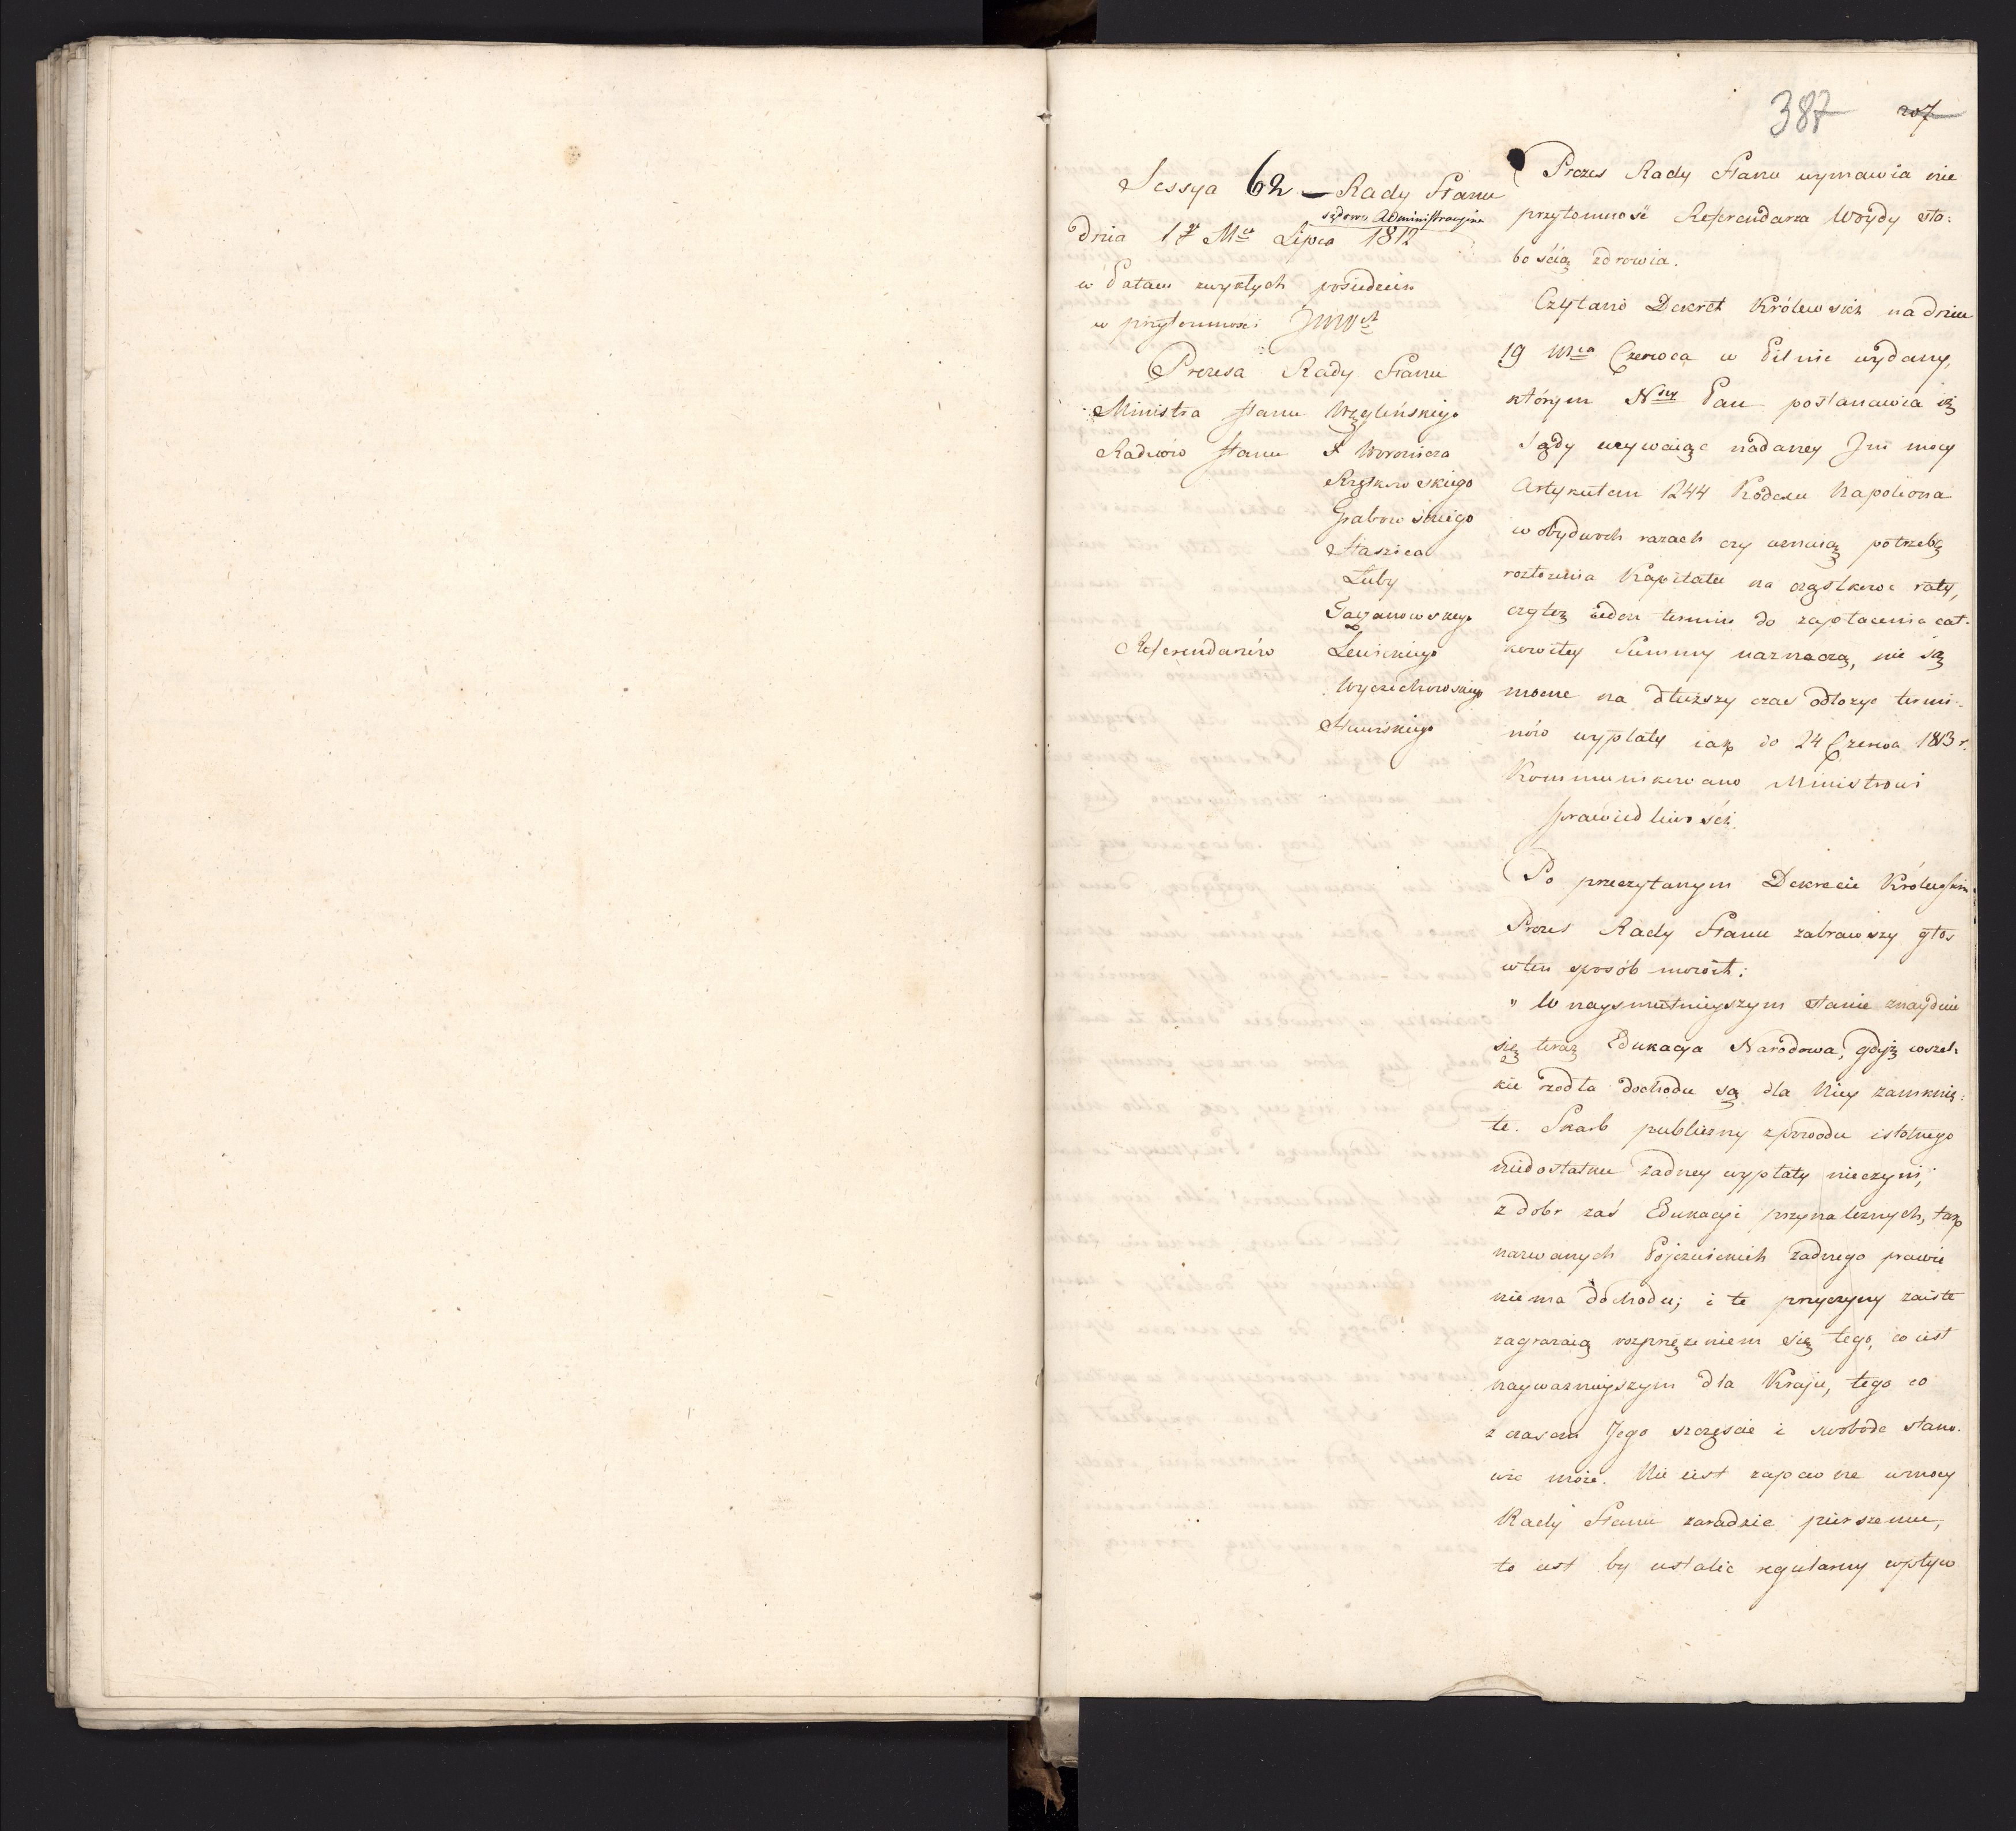 387 207
Sessya 62 – Rady Stanu
sądowo Administracyina
dnia 1º Mca Lipca 1812
w Pałacu zwykłych posiedzeń
w przytomności JWW
Prezesa Rady Stanu
Ministra Stanu Węgleńskiego
Radców Stanu X Woronicza
Rzętkowskiego
Grabowskiego
Staszica
Łuby
Taczanowskiego
Referendarzów Lewickiego
Wyczechowskiego
Prezes Rady Stanu wymawia nie
przytomność Referendarza Woydy sła:
bością zdrowia.
Czytano Dekret Królewski na dniu
19 Mca Czerwca w Pilnic wydany,
którym Nay Pan postanawia iż
Sądy używaiąc nadaney Im mocy
Artykułem 1244 Kodexu Napoliona
w obydwoch razach czy uznaią potrzebę
rozłożenia Kapitału na cząstkowe raty,
czyteż ieden termin do zapłacenia cał-
kowitey Summy naznaczą, nie są
mocne na dłuższy czas odłożyć termi-
nów wypłaty iak do 24 Czerwca 1813 r.
Kommunikowano Ministrowi
sprawiedliwości
Po przeczytanym Dekrecie Królewskim
Prezes Rady Stanu zabrawszy głos
w ten sposób mówił:
" W naysmutnieyszym stanie znayduie
się teraz Edukacya Narodowa, gdyż wszel-
kie rzodła dochodu są dla Niey zamknię:
te. Skarb publiczny zpowodu istotnego
niedostatku żadney wypłaty nieczyni;
z dobr zaś Edukacyi przynależnych, tak
nazwanych Pojezuickich żadnego prawie
niema dochodu; i te przyczyny zaiste
zagrażaią rozprzężeniem się tego, co iest
nayważnieyszym dla Kraju, tego co
z czasem Jego szczęście i swobodę stano-
wić może. Nie iest zapewne w mocy
Rady Stanu zaradzić pierszemu,
to iest by ustalić regularny wpływ